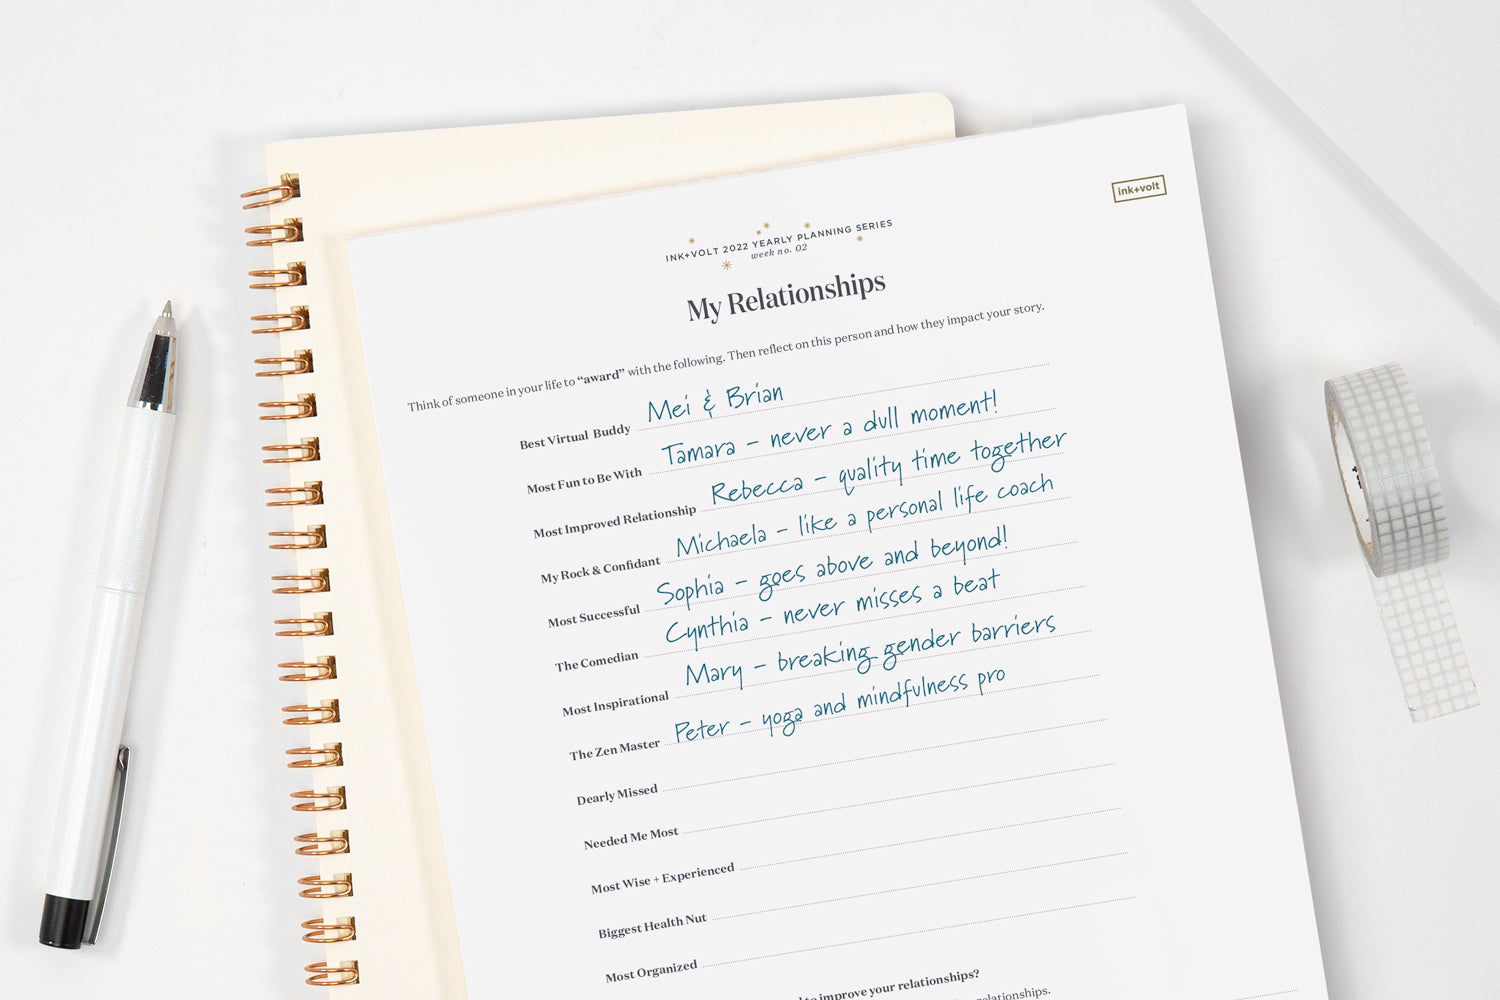 ink+volt
INK+VOLT 2022 YEARLY PLANNING SERIES
week no. 02
My Relationships
Think of someone in your life to “award” with the following. Then reflect on this person and how they impact your story.
Best Virtual Buddy Mei & Brian
Most Fun to Be With Tamara – never a dull moment!
Most Improved Relationship Rebecca – quality time together
My Rock & Confidant Michaela – like a personal life coach
Most Successful Sophia – goes above and beyond!
The Comedian Cynthia – never misses a beat
Most Inspirational Mary – breaking gender barriers
The Zen Master Peter – yoga and mindfulness pro
Dearly Missed
Needed Me Most
Most Wise + Experienced
Biggest Health Nut
Most Organized
to improve your relationships?
relationships.